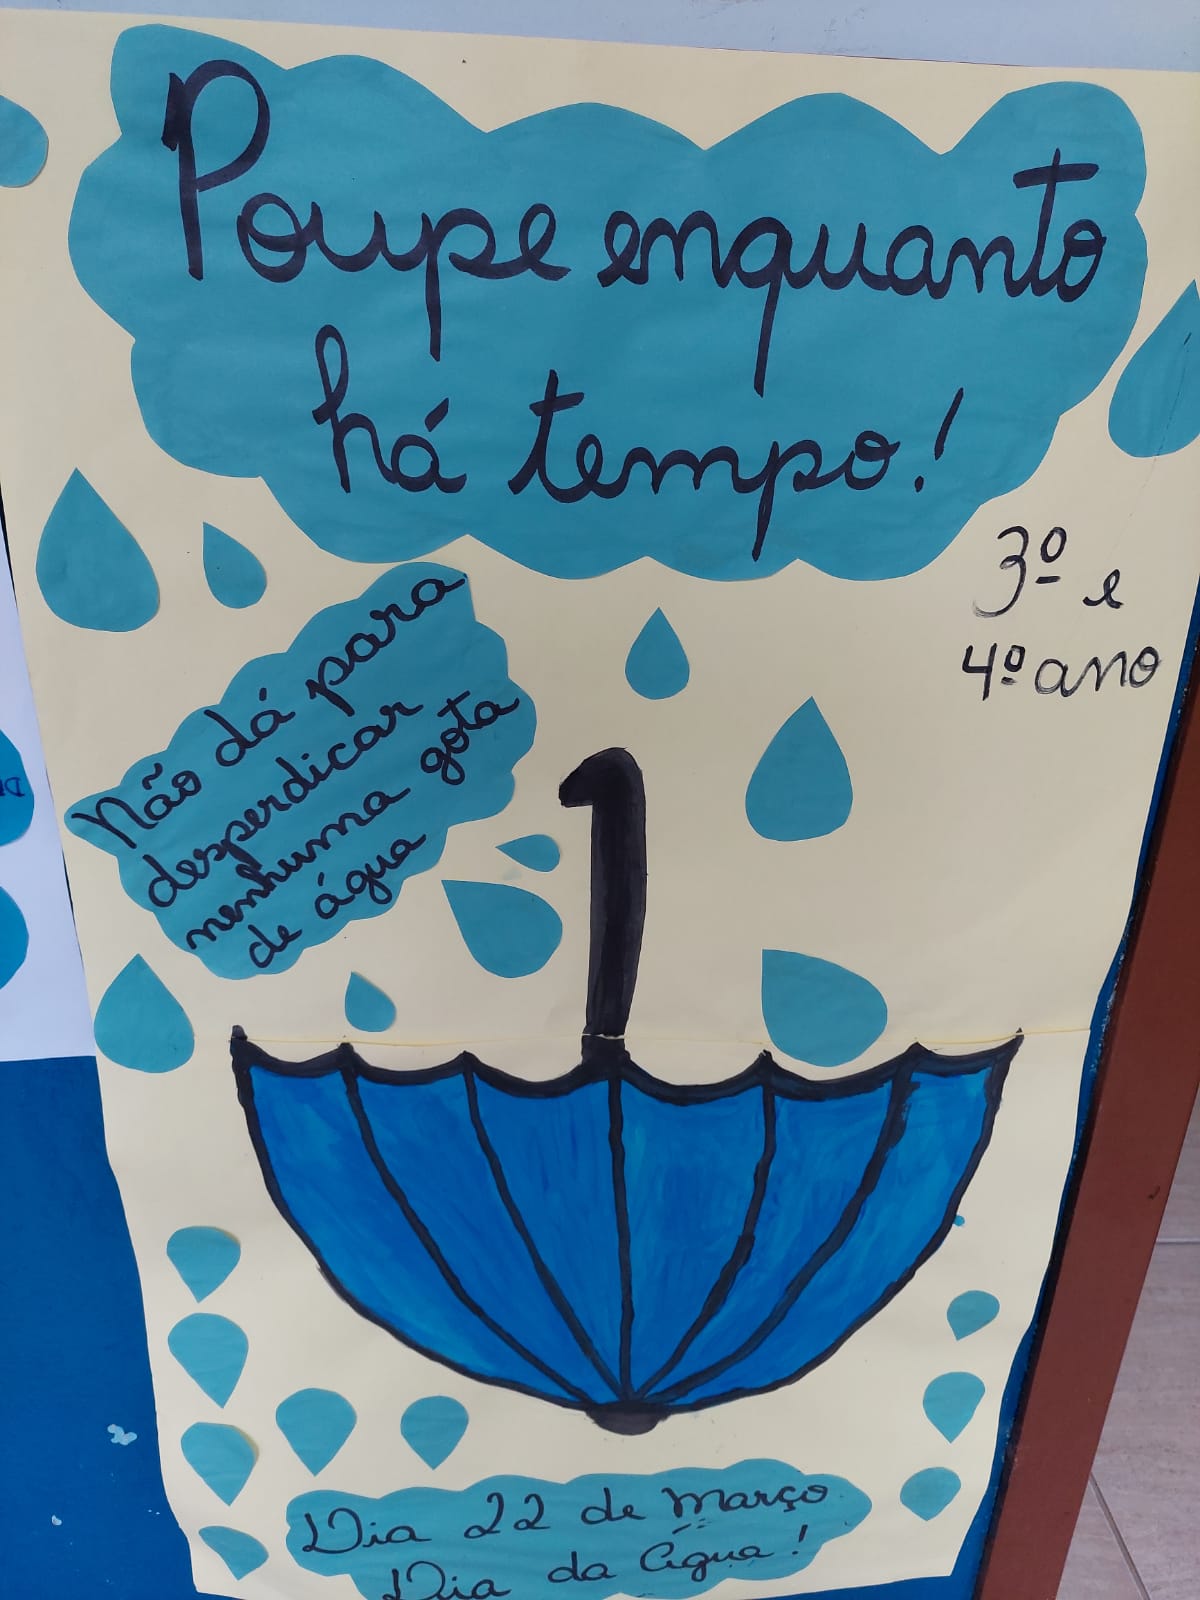 Poupe enquanto
há tempo!
3º e
4º ano
Não dá para
desperdicar
nenhuma gota
de água
Dia 22 de março
Dia da Água!